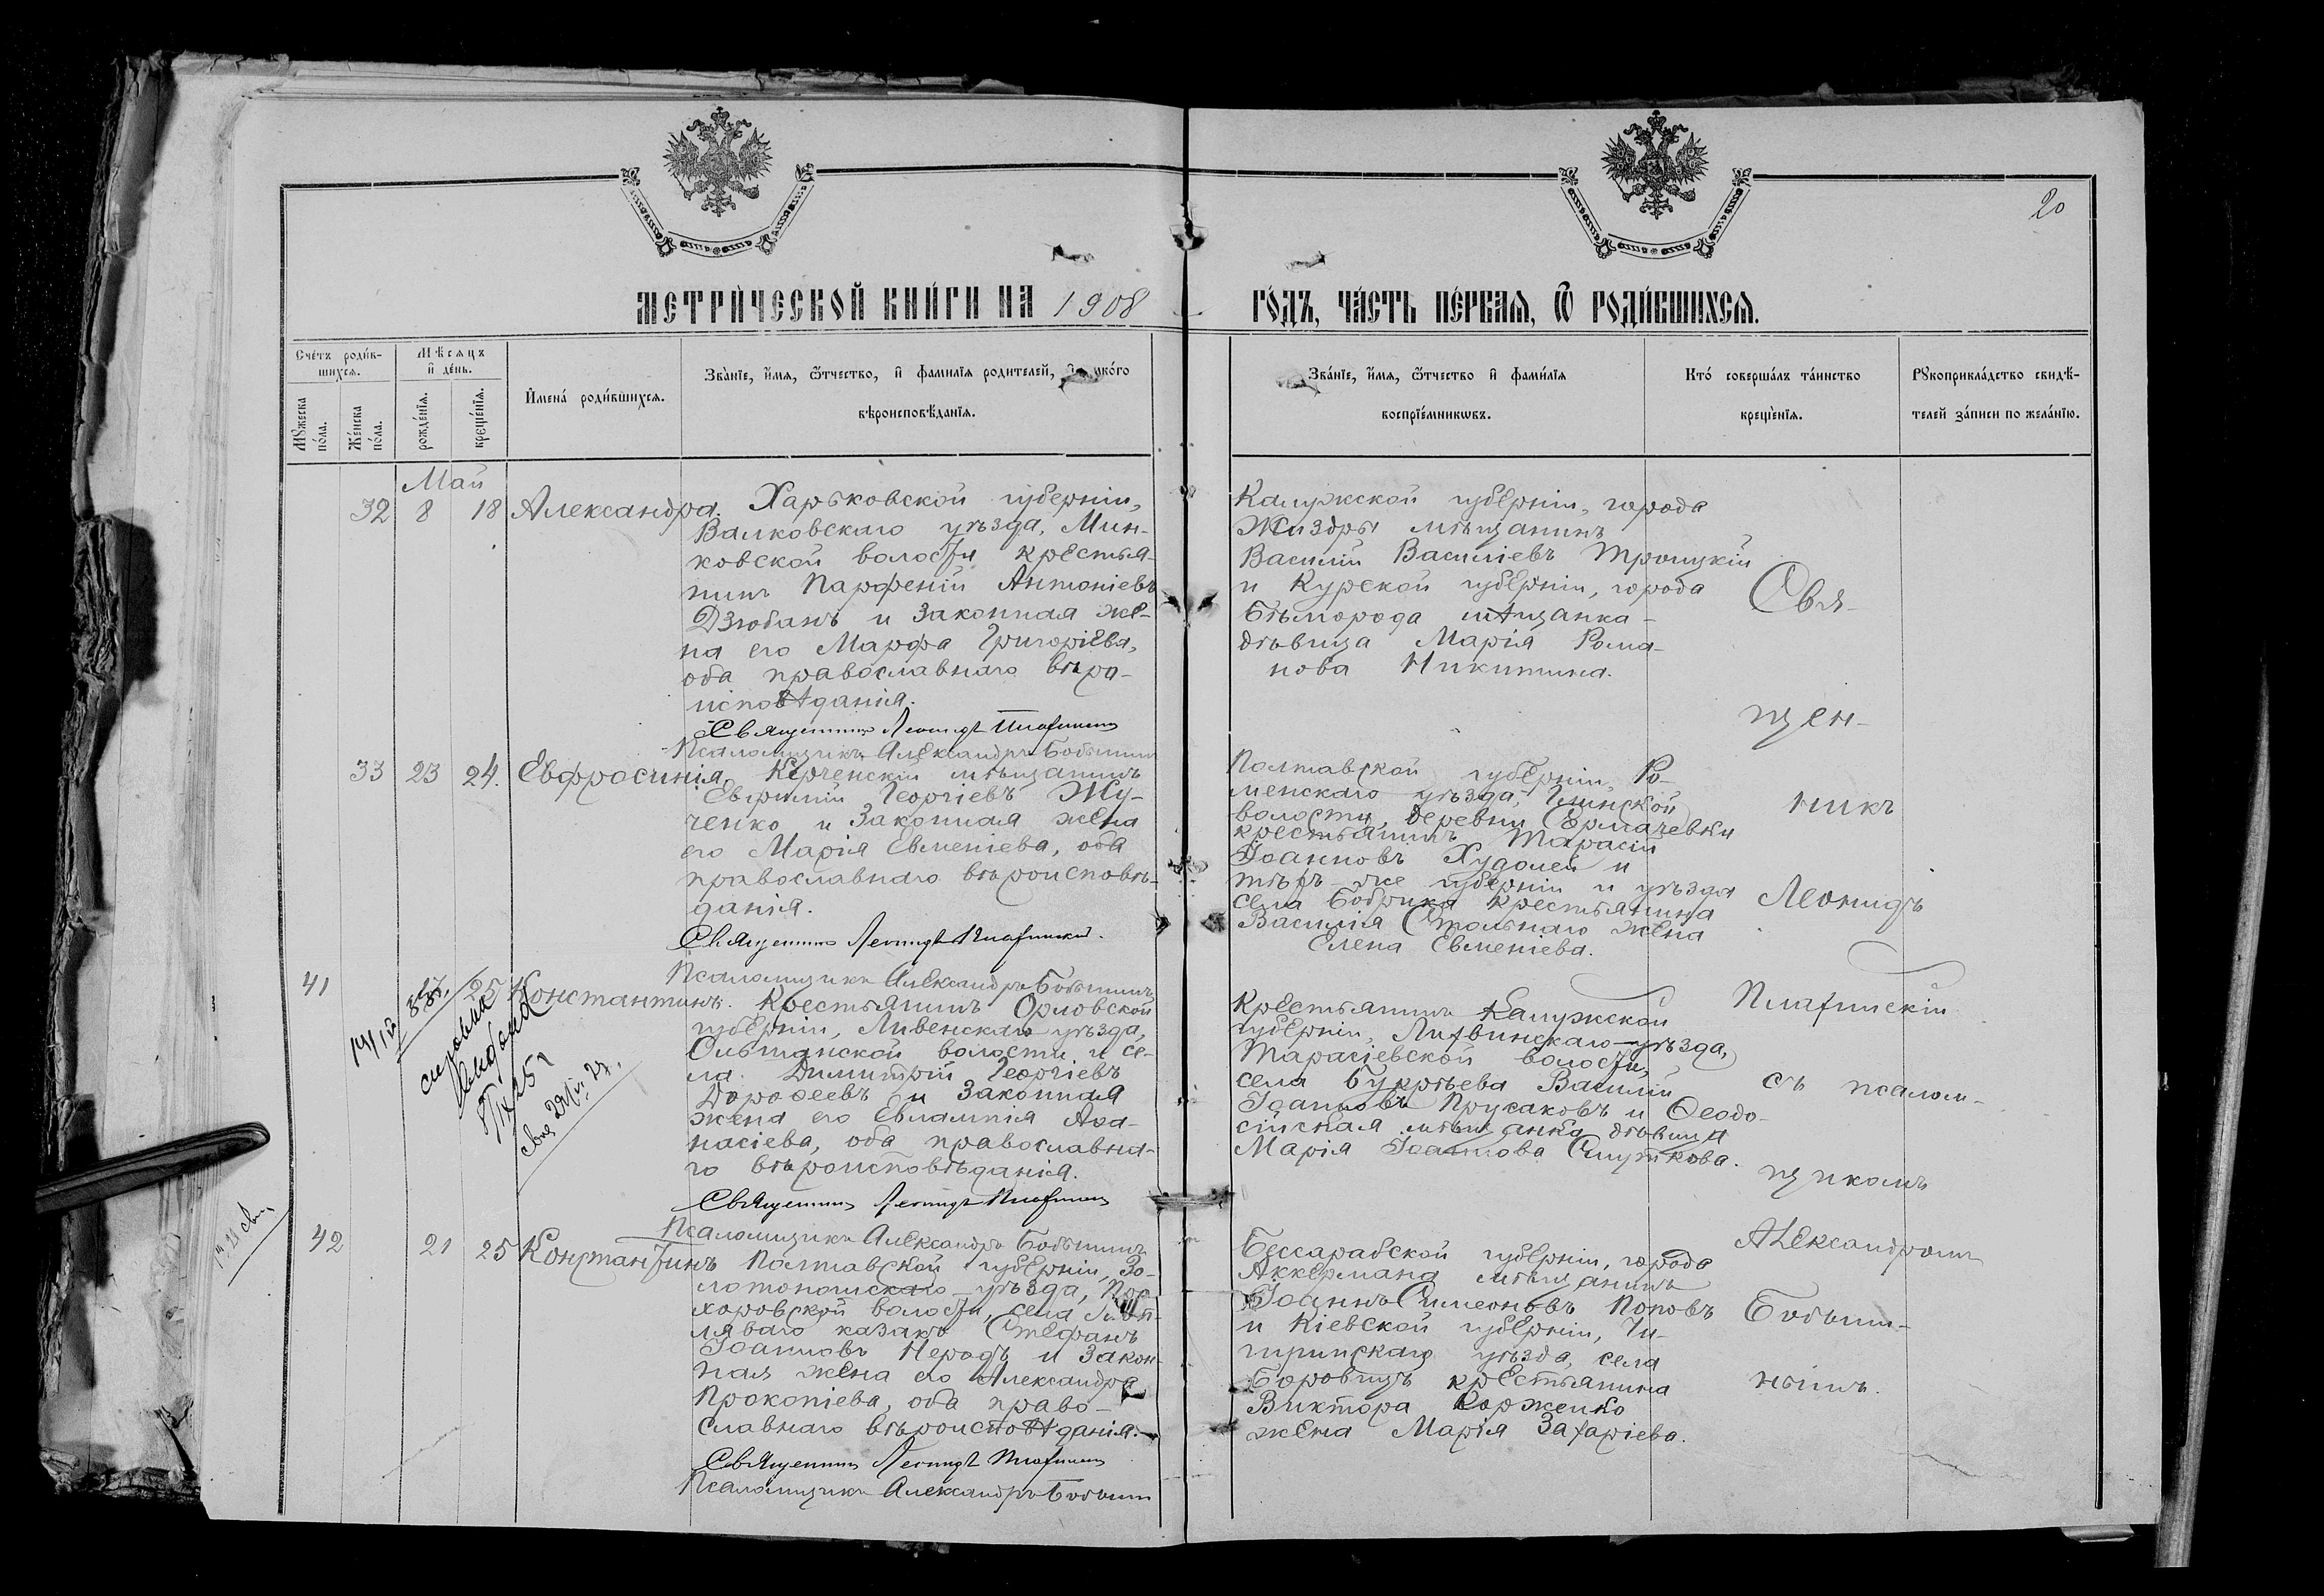 20
МЕТРИ́ЧЕСКОЙ КНИ́ГИ НА 1908 ГО́ДЪ, ЧА́СТЬ ПЕ́РВАѦ, Ѿ РОДИ́ВШИХСѦ.
Сче́тъ роди́в-
шихсѧ.
Мѣсѧцъ
и҆ де́нь.
Мꙋжеска
по́ла.
Же́нска
по́ла.
рожде́нїѧ.
креще́нїѧ.
И҆мена̀ роди́вшихсѧ.
Зва́нїе, и҆́мѧ, ѻ҆́тчество, и҆ фамилїѧ родителей,
вѣроисповѣ́данїѧ.
Зва́нїе, и҆́мѧ, ѻ҆́тчество и҆ фами́лїѧ
воспрїе́мникѡвъ.
Кто̀ соверша́лъ та́инство
креще́нїѧ.
Рꙋкоприкла́дство свидѣ́-
телей за́писи по жела́нїю.
Май
32 8 18 Александра.
Харьковской губерніи,
Валковскаго уѣзда, Мин-
ковской волости крестья-
нинъ Парфеній Антоніевъ
Дзюбанъ и законная же-
на его Марфа Григоріева,
оба православнаго вѣро-
исповѣданія.
Священникъ Леонидъ Платинскій
Псаломщикъ Александръ Бобынинъ
Калужской губерніи, города
Жиздры мѣщанинъ
Василій Василіевъ Троицкій
и Курской губерніи, города
Бѣлгорода мѣщанка-
дѣвица Марія Рома-
нова Никитина.
33 23 24. Евфросинія,
Керченскій мѣщанинъ
Евфимій Георгіевъ Жу-
ченко и законная жена
его Марія Евменіева, оба
православнаго вѣроисповѣ-
данія.
Священникъ Леонидъ Платинскій.
Псаломщикъ Александръ Бобынинъ
Полтавской губерніи, Ро-
менскаго уѣзда, Глинской
волости, деревни Ермачевки
крестьянинъ Тарасій
Іоанновъ Худолей и
тѣхъ-же губерніи и уѣзда
села Бобрика крестьянина
Василія Стольнаго жена
Елена Евменіева.
41 25 Константинъ.
Крестьянинъ Орловской
губерніи, Ливенскаго уѣзда,
Ольшанской волости и се-
ла Димитрій Георгіевъ
Дорофеевъ и законная
жена его Евлампія Аѳа-
насіева, оба православна-
го вѣроисповѣданія.
Священникъ Леонидъ Платинскій
Псаломщикъ Александръ Бобынинъ
Крестьянинъ Калужской
губерніи, Лихвинскаго уѣзда,
Тарасіевской волости,
села Букрѣева Василій
Іоанновъ Прусаковъ и Ѳеодо-
сійская мѣщанка дѣвица
Марія Іоаннова
42 21 25 Константинъ
Полтавской губерніи, Зо-
лотоношскаго уѣзда, Про-
хоровской волости, села
казакъ Стефанъ
Іоанновъ Нерадъ и закон-
ная жена его Александра
Прокопіева, оба право-
славнаго вѣроисповѣданія.
Священникъ Леонидъ Платинскій
Псаломщикъ Александръ Бобынинъ
Бессарабской губерніи, города
Аккермана мѣщанинъ
Іоаннъ Симеоновъ Поповъ
и Кіевской губерніи, Чи-
гиринскаго уѣзда, села
Боровицъ крестьянина
Виктора Корженко
жена Марія Захаріева.
Свя-
щен-
никъ
Леонидъ
Платинскій
съ псалом-
щикомъ
Александромъ
Бобыни-
нымъ.